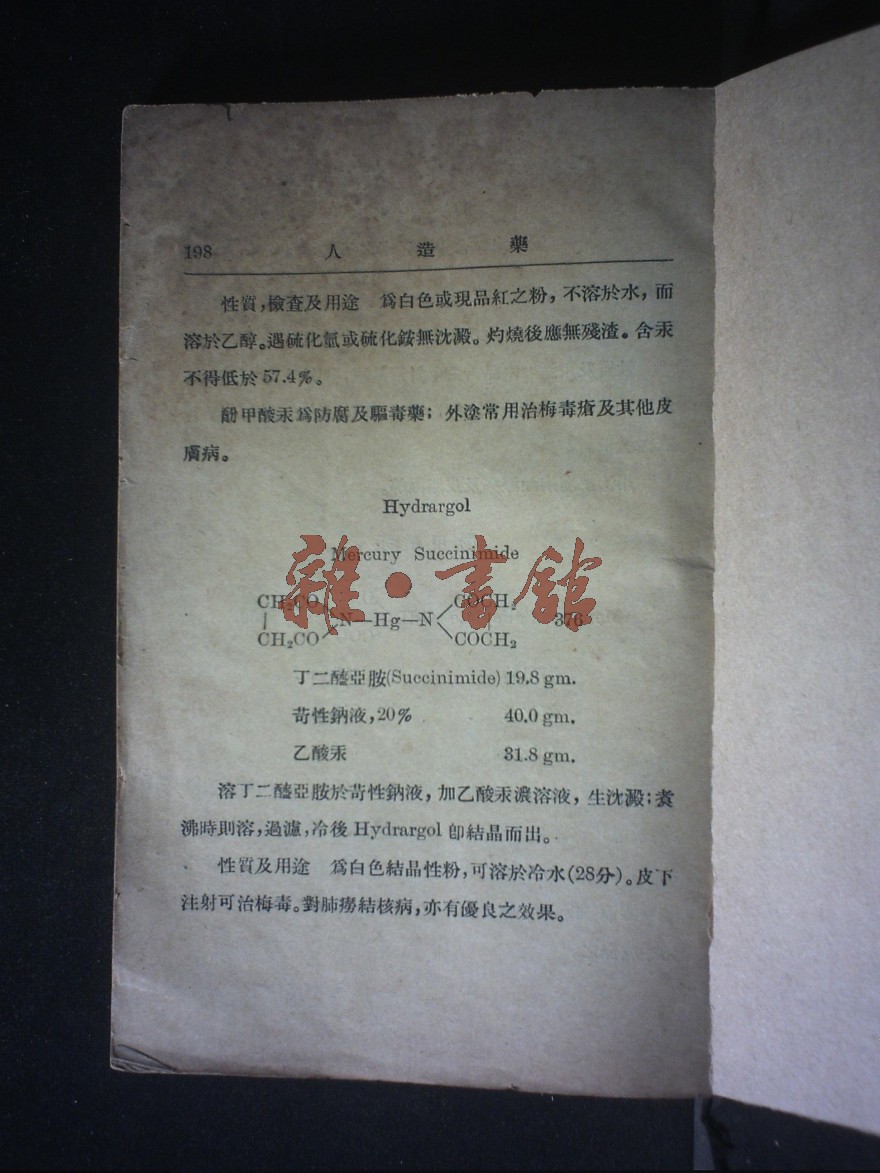 198 人造藥
性質,檢查及用途 為白色或現品紅之粉,不溶於水,而
溶於乙醇。遇硫化氫或硫化銨無沈澱。灼燒後應無殘渣。含汞
不得低於57.4%。
酚甲酸汞為防腐及驅毒藥;外塗常用治梅毒瘡及其他皮
膚病。
Hydrargol
Mercury Succinimide
雜·書館
CH₂CO COCH₂
N—Hg—N 376
CH₂CO COCH₂
丁二醯亞胺(Succinimide) 19.8 gm.
苛性鈉液,20% 40.0 gm.
乙酸汞 31.8 gm.
溶丁二醯亞胺於苛性鈉液,加乙酸汞濃溶液,生沈澱;煑
沸時則溶,過濾,冷後 Hydrargol 卽結晶而出。
性質及用途 為白色結晶性粉,可溶於冷水(28分)。皮下
注射可治梅毒。對肺癆結核病,亦有優良之效果。